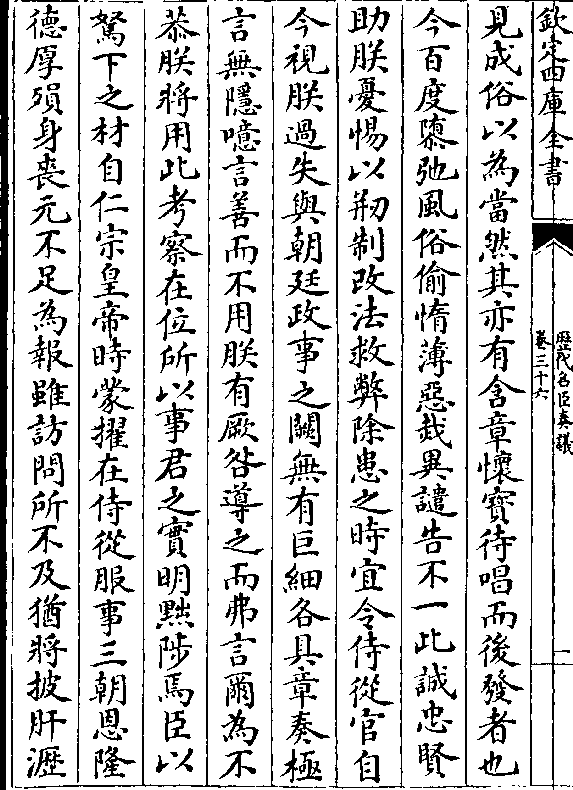 欽定四庫全書
歷代名臣奏議
卷三十六
一
見成俗以為當然其亦有含章懷寶待唱而後發者也
今百度隳弛風俗偷惰薄惡烖異譴告不一此誠忠賢
助朕憂惕以剏制改法救弊除患之時宜令侍從官自
今視朕過失與朝廷政事之闕無有巨細各具章奏極
言無隱噫言善而不用朕有厥咎導之而弗言爾為不
恭朕將用此考察在位所以事君之實明黜陟焉臣以
駑下之材自仁宗皇帝時蒙擢在侍從服事三朝恩隆
德厚殞身喪元不足為報雖訪問所不及猶將披肝瀝